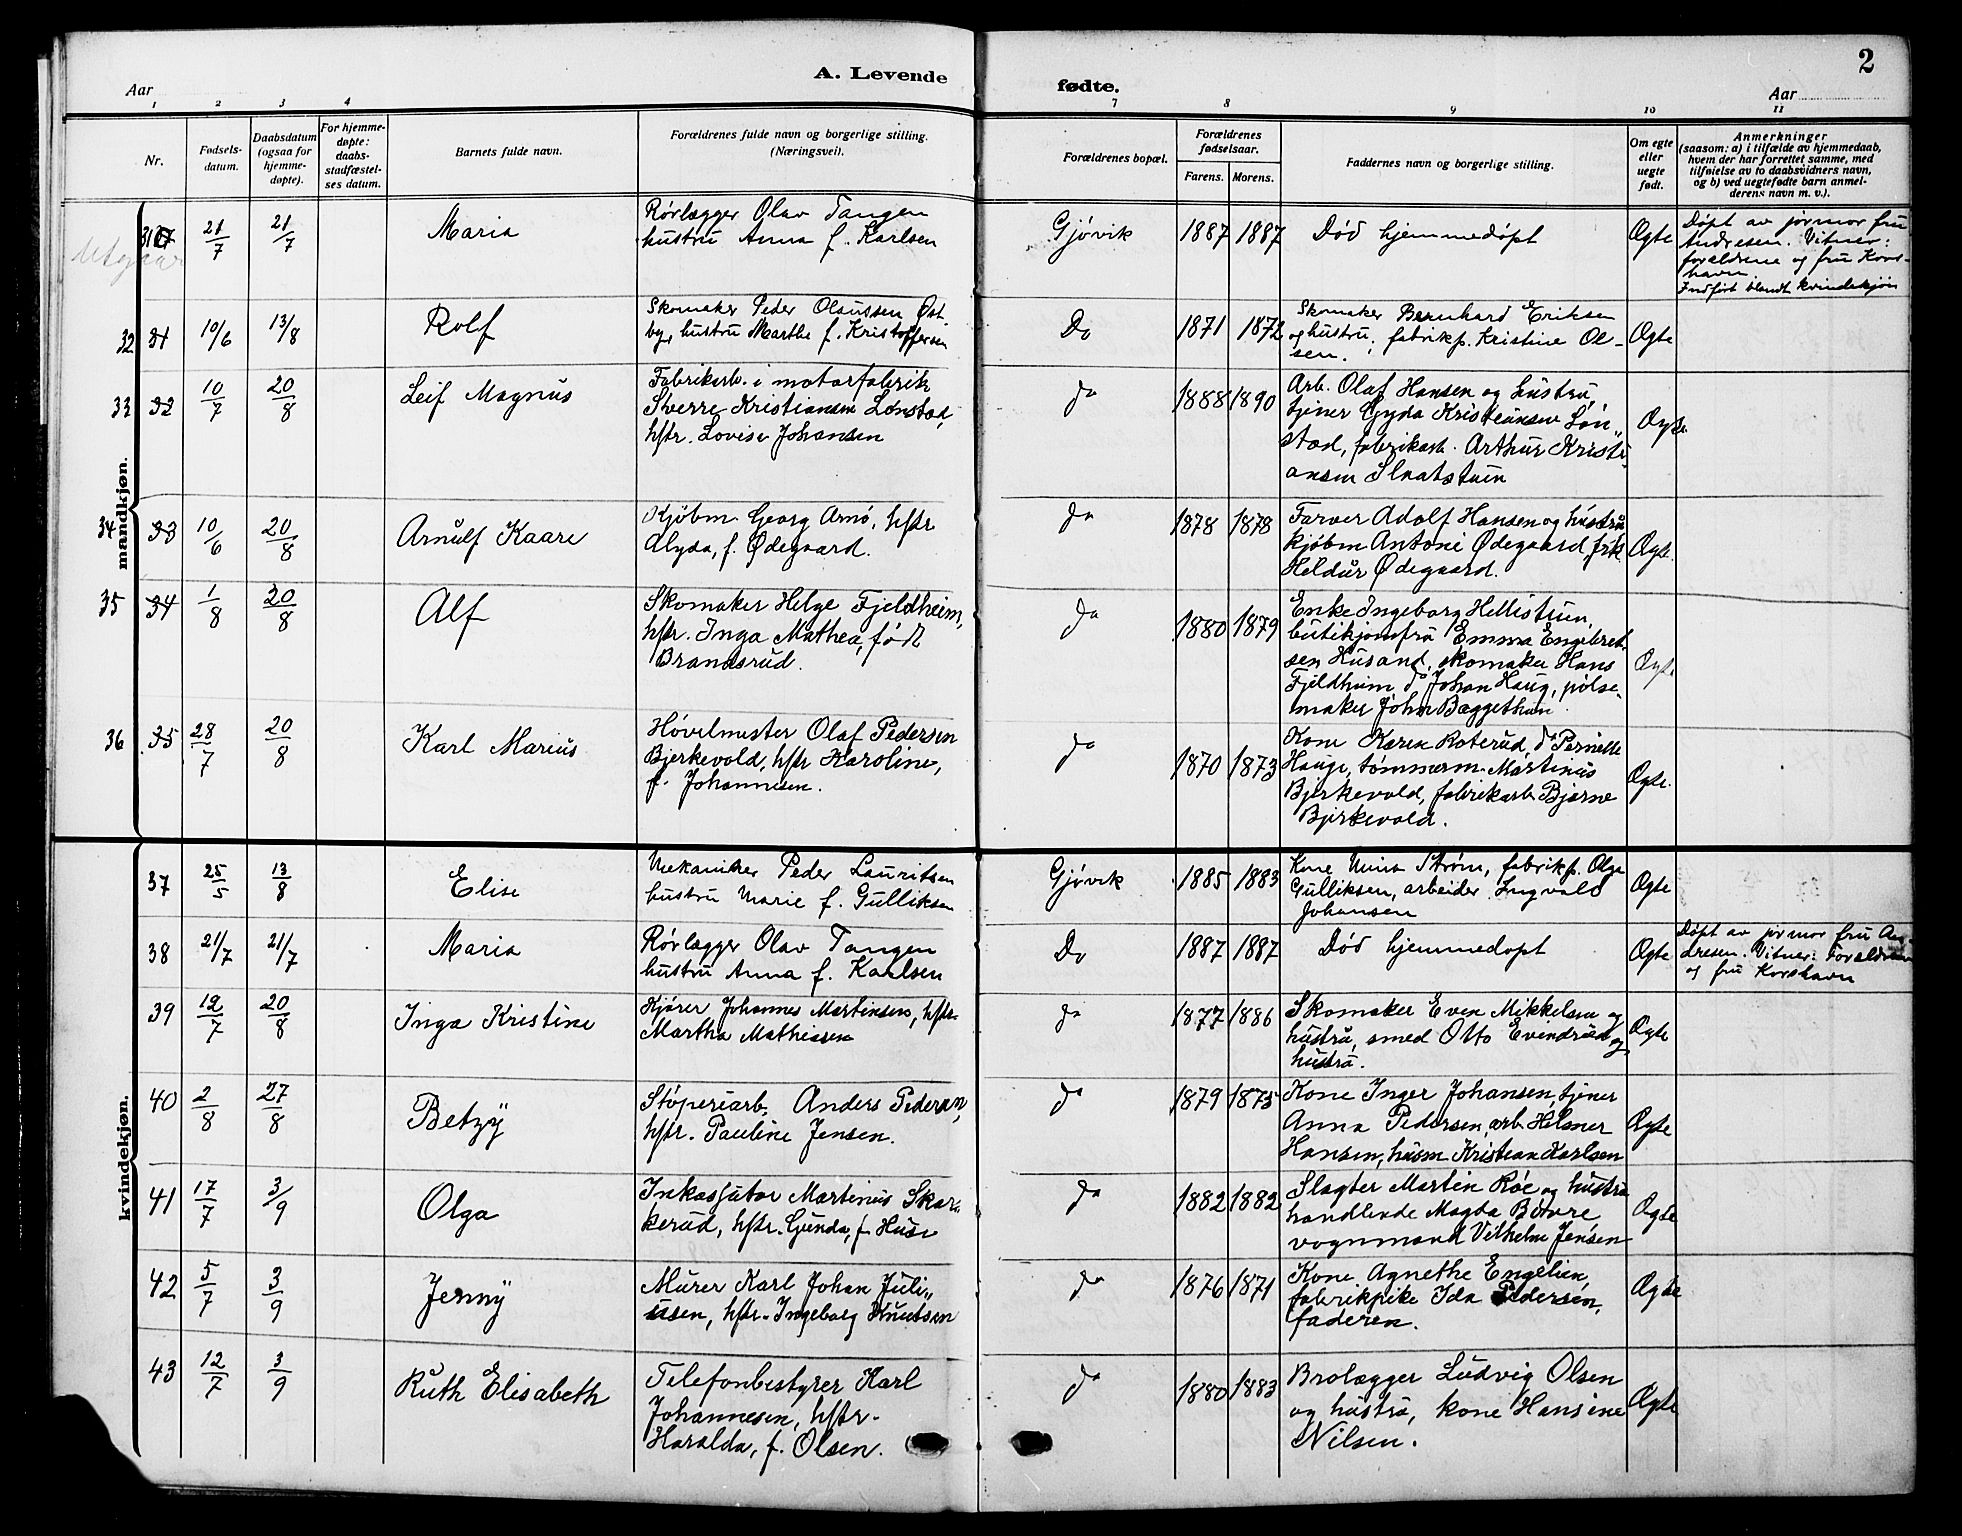 2
A. Levende fødte.
Aar
Aar
1 2 3 4 7 8 9 10 11
Nr.
Fødsels-
datum.
Daabsdatum
(ogsaa for
hjemme-
døpte).
For hjemme-
døpte:
daabs-
stadfæstel-
ses datum.
Barnets fulde navn.
Forældrenes fulde navn og borgerlige stilling.
(Næringsvei).
Forældrenes bopæl.
Forældrenes
fødselsaar.
Farens. Morens.
Faddernes navn og borgerlige stilling.
Om egte
eller
uegte
født.
Anmerkninger
(saasom: a) i tilfælde av hjemmedaab,
hvem der har forrettet samme, med
tilføielse av to daabsvidners navn,
og b) ved uegtefødte barn anmel-
derens navn m. v.).
mandkjøn.
Utgaar
21/7 21/7 Maria
Rørlægger Olav Tangen
hustru Anna f. Karlsen
Gjøvik 1887 1887 Død hjemmedøpt Ægte
Døpt av jormor fru
Andresen. Vitner:
forældrene og fru Kors-
havn.
Indført blandt kvindekjøn
32 31 10/6 13/8 Rolf
Skomaker Peder Olaussen Øst-
by, hustru Marthe f. Kristoffersen
Do 1871 1872
Skomaker Bernhard Eriksen
og hustru, fabrikp. Kristine Ol-
sen.
Ægte
33 32 10/7 20/8 Leif Magnus
Fabrikarb. i motorfabrik
Sverre Kristiansen Lønstad,
hstr. Lovise Johansen
do 1888 1890
Arb. Olaf Hansen og hustru,
tjener Gyda Kristiansen Løn-
stad, fabrikarb. Arthur Kristi-
ansen Slaatstuen
Ægte
34 33 10/6 20/8 Arnulf Kaare
Kjøbm. Georg Arnø, hstr
Alyda, f. Ødegaard.
do 1878 1878
Farver Adolf Hansen og hustru
kjøbm Antoni Ødegaard, frk.
Heldur Ødegaard.
Ægte.
35 34 1/8 20/8 Alf
Skomaker Helge Fjeldheim,
hstr. Inga Mathea, født
Brandsrud.
do 1880 1879
Enke Ingeborg Hellistuen,
butikjomfru Emma Engebret-
sen Husand, skomaker Hans
Fjeldheim do Johan Haug, pølse-
maker John Bæggethun.
Ægte
36 35 28/7 20/8 Karl Marius
Høvelmester Olaf Pedersen
Bjerkevold, hstr Karoline,
f. Johannesen.
do 1870 1873
Kone Karen Roterud, do Pernille
Hauge, tømmerm. Martinus
Bjerkevold, fabrikarb. Bjarne
Bjerkevold.
Ægte.
kvindekjøn.
37 25/5 13/8 Elise
Mekaniker Peder Lauritsen
hustru Marie f. Gulliksen
Gjøvik 1885 1883
Kone Mina Strøm, fabrikp. Olga
Gulliksen, arbeider Ingvald
Johansen
Ægte
38 21/7 21/7 Maria
Rørlægger Olav Tangen
hustru Anna f. Karlsen
Do 1887 1887 Død hjemmedøpt Ægte
Døpt av jormor fru An-
dresen. Vitner: Forældrene
og fru Korshavn
39 12/7 20/8 Inga Kristine
Kjører Johannes Martinsen, hstr.
Martha Mathiesen
do 1877 1886
Skomaker Even Mikkelsen og
hustru, smed Otto Evindrud og
hustru.
Ægte
40 2/8 27/8 Betzy
Støperiarb. Anders Pedersen,
hstr. Pauline Jensen.
do 1879 1875
Kone Inger Johansen, tjener
Anna Pedersen, arb. Helmer
Hansen, husm Kristian Karlsen
Ægte
41 17/7 3/9 Olga
Inkassjutor Martinus Skar-
kerud, hstr. Gunda, f. Huse
do 1882 1882
Slagter Martin Røe og hustru
handlende Magda Bøvre
vognmand Vilhelm Jensen
Ægte
42 5/7 3/9 Jenny
Murer Karl Johan Juli-
ussen, hstr. Ingeborg Knutsen
do 1876 1871
Kone Agnethe Engelien,
fabrikpike Ida Pedersen,
faderen.
Ægte
43 12/7 3/9 Ruth Elisabeth
Telefonbestyrer Karl
Johannesen, hstr.
Haralda, f. Olsen.
do 1880 1883
Brolægger Ludvig Olsen
og hustru, kone Hansine
Nilsen.
Ægte